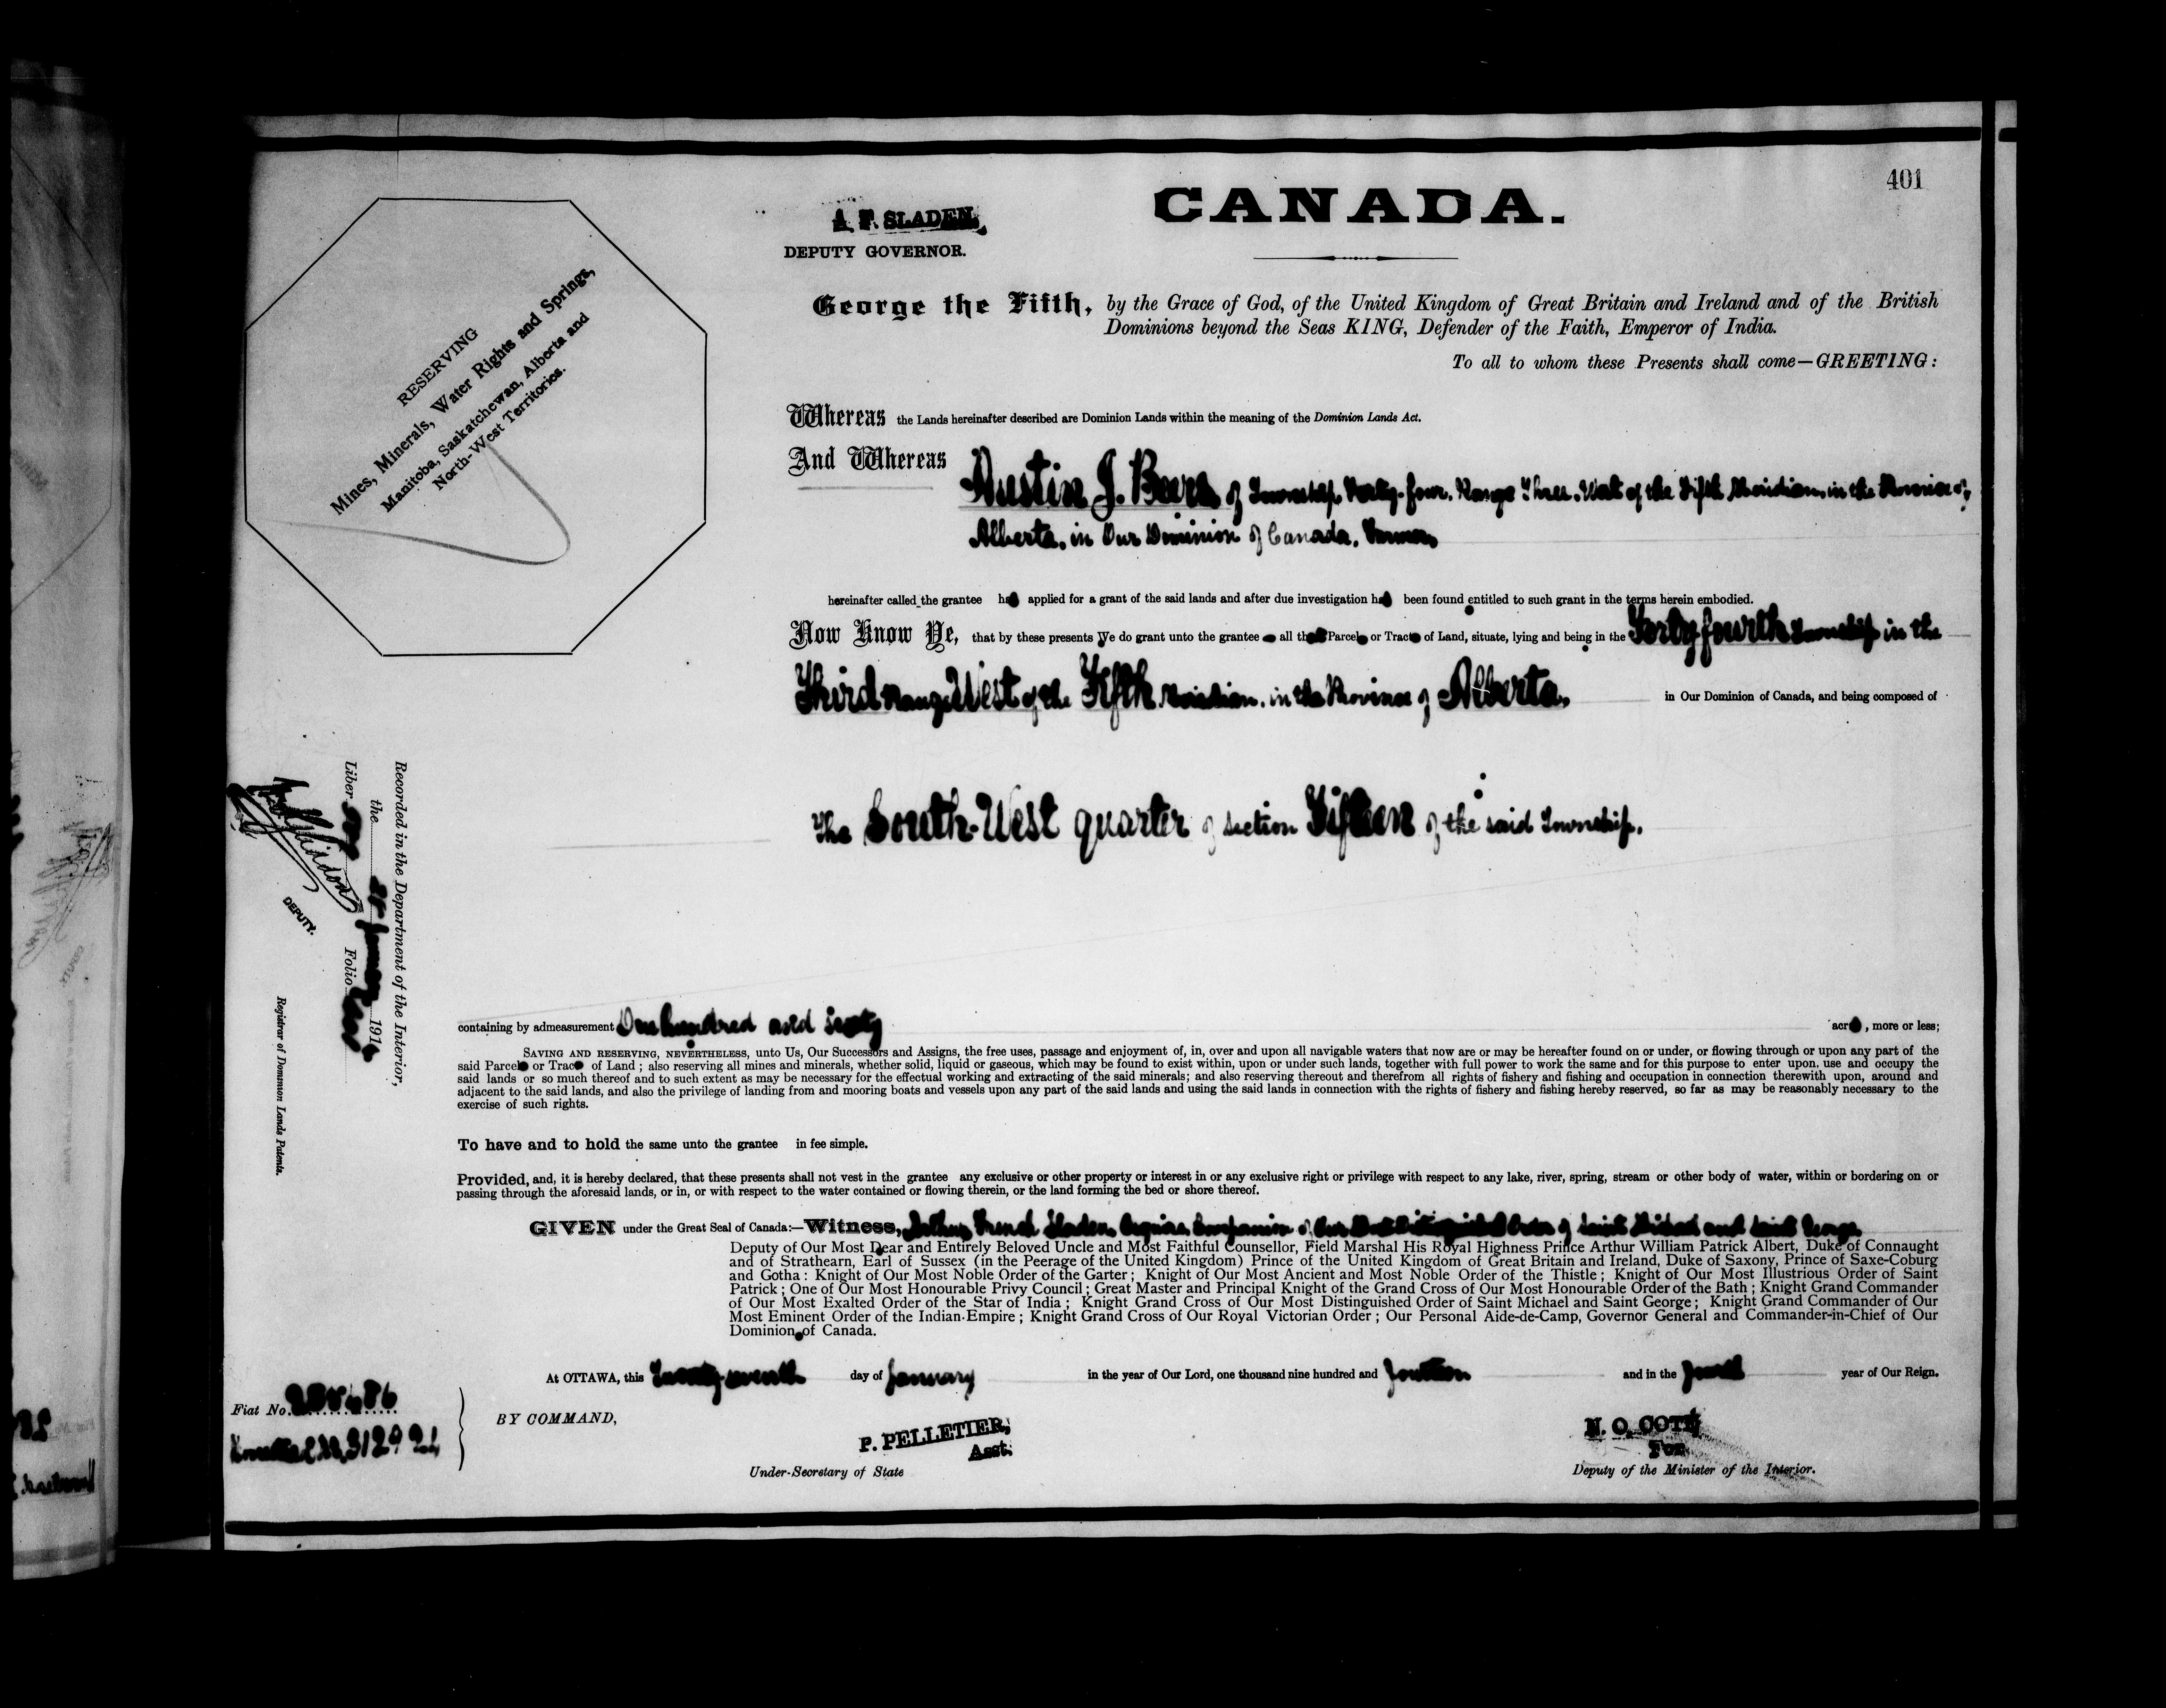 401
CANADA.
A. F. SLADEN,
DEPUTY GOVERNOR.
George the Fifth, by the Grace of God, of the United Kingdom of Great Britain and Ireland and of the British
Dominions beyond the Seas KING, Defender of the Faith, Emperor of India.
To all to whom these Presents shall come—GREETING:
RESERVING
Mines, Minerals, Water Rights and Springs,
Manitoba, Saskatchewan, Alberta and
North-West Territories.
Whereas the Lands hereinafter described are Dominion Lands within the meaning of the Dominion Lands Act.
And Whereas
Austin J. Beers of Township Forty-four, Range Three, West of the Fifth Meridian, in the Province of
Alberta, in Our Dominion of Canada, Farmer,
hereinafter called the grantee has applied for a grant of the said lands and after due investigation has been found entitled to such grant in the terms herein embodied.
Now Know Ye, that by these presents We do grant unto the grantee all that Parcel or Tract of Land, situate, lying and being in the Forty fourth Township in the
Third Range West of the Fifth Meridian, in the Province of Alberta, in Our Dominion of Canada, and being composed of
The South-West quarter of section Fifteen of the said Township.
Recorded in the Department of the Interior,
the January 1914
Liber Folio
DEPUTY.
Registrar of Dominion Lands Patents.
containing by admeasurement One hundred and sixty acres, more or less;
SAVING AND RESERVING, NEVERTHELESS, unto Us, Our Successors and Assigns, the free uses, passage and enjoyment of, in, over and upon all navigable waters that now are or may be hereafter found on or under, or flowing through or upon any part of the
said Parcel or Tract of Land; also reserving all mines and minerals, whether solid, liquid or gaseous, which may be found to exist within, upon or under such lands, together with full power to work the same and for this purpose to enter upon, use and occupy the
said lands or so much thereof and to such extent as may be necessary for the effectual working and extracting of the said minerals; and also reserving thereout and therefrom all rights of fishery and fishing and occupation in connection therewith upon, around and
adjacent to the said lands, and also the privilege of landing from and mooring boats and vessels upon any part of the said lands and using the said lands in connection with the rights of fishery and fishing hereby reserved, so far as may be reasonably necessary to the
exercise of such rights.
To have and to hold the same unto the grantee in fee simple.
Provided, and, it is hereby declared, that these presents shall not vest in the grantee any exclusive or other property or interest in or any exclusive right or privilege with respect to any lake, river, spring, stream or other body of water, within or bordering on or
passing through the aforesaid lands, or in, or with respect to the water contained or flowing therein, or the land forming the bed or shore thereof.
GIVEN under the Great Seal of Canada:—Witness, Arthur French Sladen, Esquire, Companion of Our Most Distinguished Order of Saint Michael and Saint George
Deputy of Our Most Dear and Entirely Beloved Uncle and Most Faithful Counsellor, Field Marshal His Royal Highness Prince Arthur William Patrick Albert, Duke of Connaught
and of Strathearn, Earl of Sussex (in the Peerage of the United Kingdom) Prince of the United Kingdom of Great Britain and Ireland, Duke of Saxony, Prince of Saxe-Coburg
and Gotha: Knight of Our Most Noble Order of the Garter; Knight of Our Most Ancient and Most Noble Order of the Thistle; Knight of Our Most Illustrious Order of Saint
Patrick; One of Our Most Honourable Privy Council; Great Master and Principal Knight of the Grand Cross of Our Most Honourable Order of the Bath; Knight Grand Commander
of Our Most Exalted Order of the Star of India; Knight Grand Cross of Our Most Distinguished Order of Saint Michael and Saint George; Knight Grand Commander of Our
Most Eminent Order of the Indian Empire; Knight Grand Cross of Our Royal Victorian Order; Our Personal Aide-de-Camp, Governor General and Commander-in-Chief of Our
Dominion of Canada.
At OTTAWA, this Twenty-seventh day of January in the year of Our Lord, one thousand nine hundred and fourteen and in the fourth year of Our Reign.
Fiat No.
BY COMMAND,
P. PELLETIER,
Asst.
Under-Secretary of State
N. O. COTÉ
For
Deputy of the Minister of the Interior.